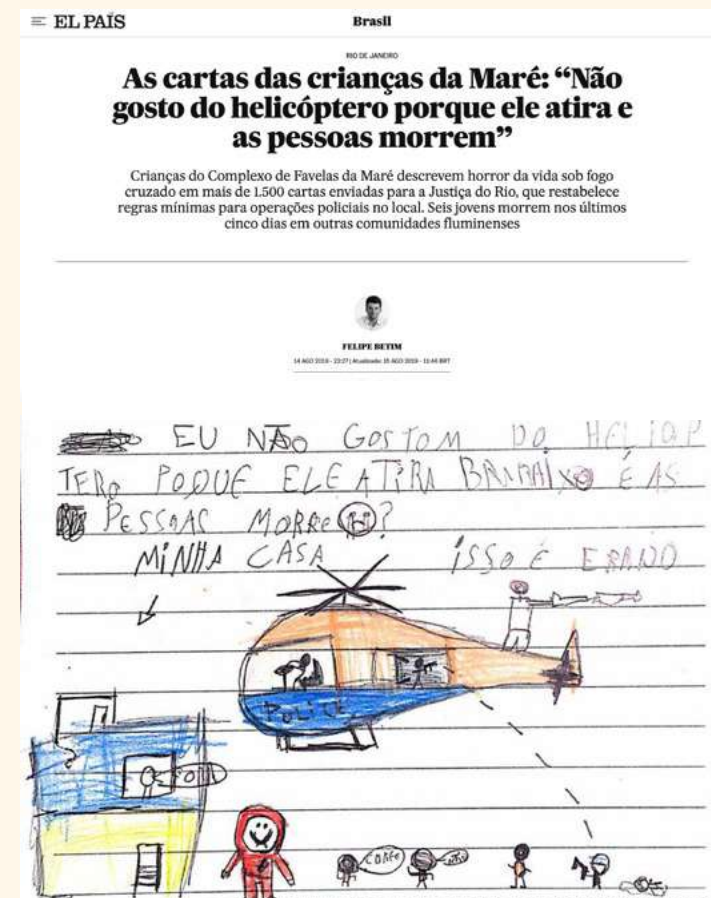 EL PAÍS
Brasil
RIO DE JANEIRO
As cartas das crianças da Maré: “Não
gosto do helicóptero porque ele atira e
as pessoas morrem”
Crianças do Complexo de Favelas da Maré descrevem horror da vida sob fogo
cruzado em mais de 1.500 cartas enviadas para a Justiça do Rio, que restabelece
regras mínimas para operações policiais no local. Seis jovens morrem nos últimos
cinco dias em outras comunidades fluminenses
FELIPE BETIM
14 AGO 2019 - 23:27 | Atualizado: 15 AGO 2019 - 11:46 BRT
EU NÃO GOSTOM DO HELIOP
TERO POQUE ELE ATIRA É AS
PESSOAS MORRE
MINHA CASA ISSO É ERADO
POLICE
CORRE